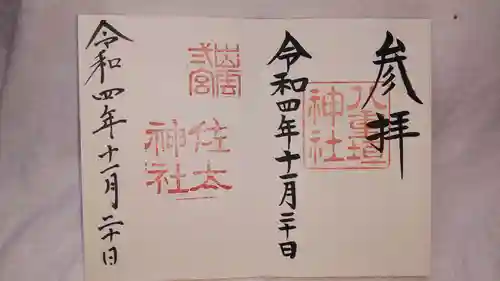 参拝
八重垣神社
令和四年十一月二十日
出雲弐宮
佐太神社
令和四年十一月二十日